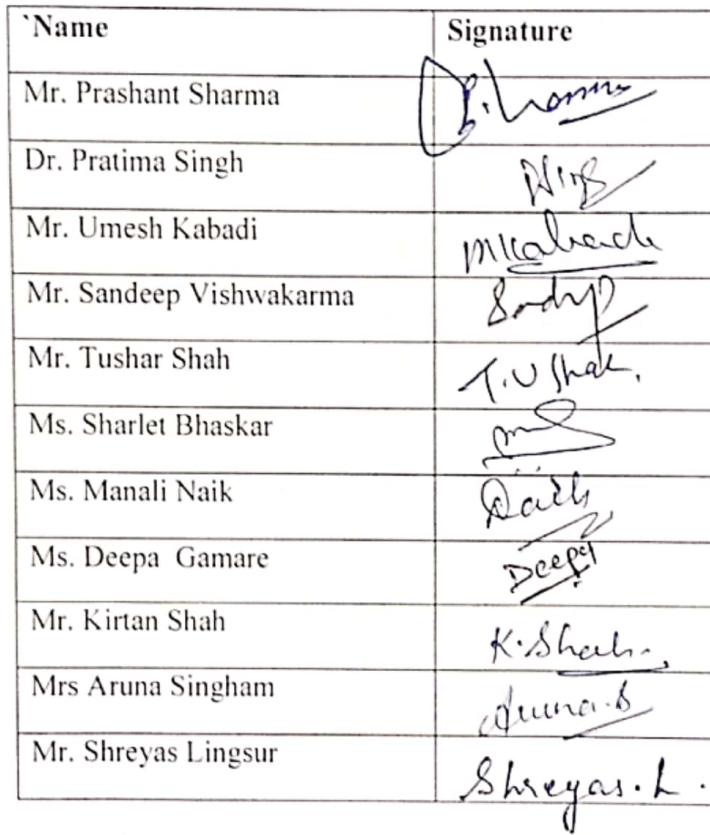 `Name Signature
Mr. Prashant Sharma
Dr. Pratima Singh
Mr. Umesh Kabadi
Mr. Sandeep Vishwakarma
Mr. Tushar Shah T.U Shah
Ms. Sharlet Bhaskar
Ms. Manali Naik
Ms. Deepa Gamare Deepa
Mr. Kirtan Shah K. Shah
Mrs Aruna Singham Aruna.S
Mr. Shreyas Lingsur Shreyas. L.